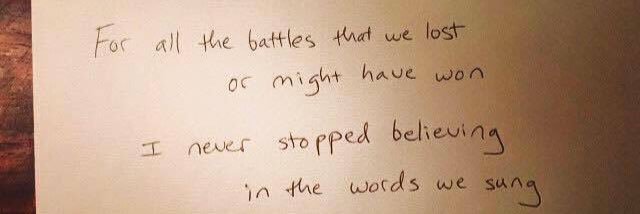 For all the battles that we lost
or might have won
I never stopped believing
in the words we sung